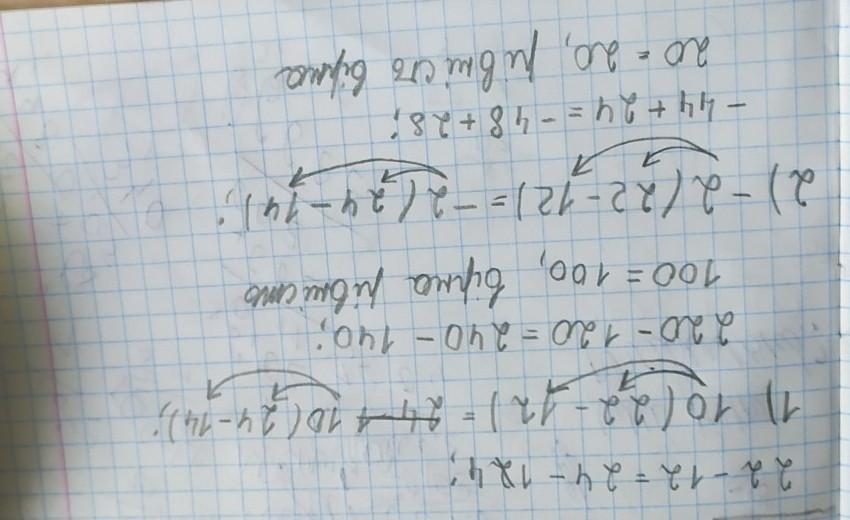 22 - 12 = 24 - 124;
1) 10(22 - 12) = 10(24 - 14);
220 - 120 = 240 - 140;
100 = 100, вірна рівність
2) -2(22 - 12) = -2(24 - 14);
-44 + 24 = -48 + 28;
20 = 20, рівність вірна